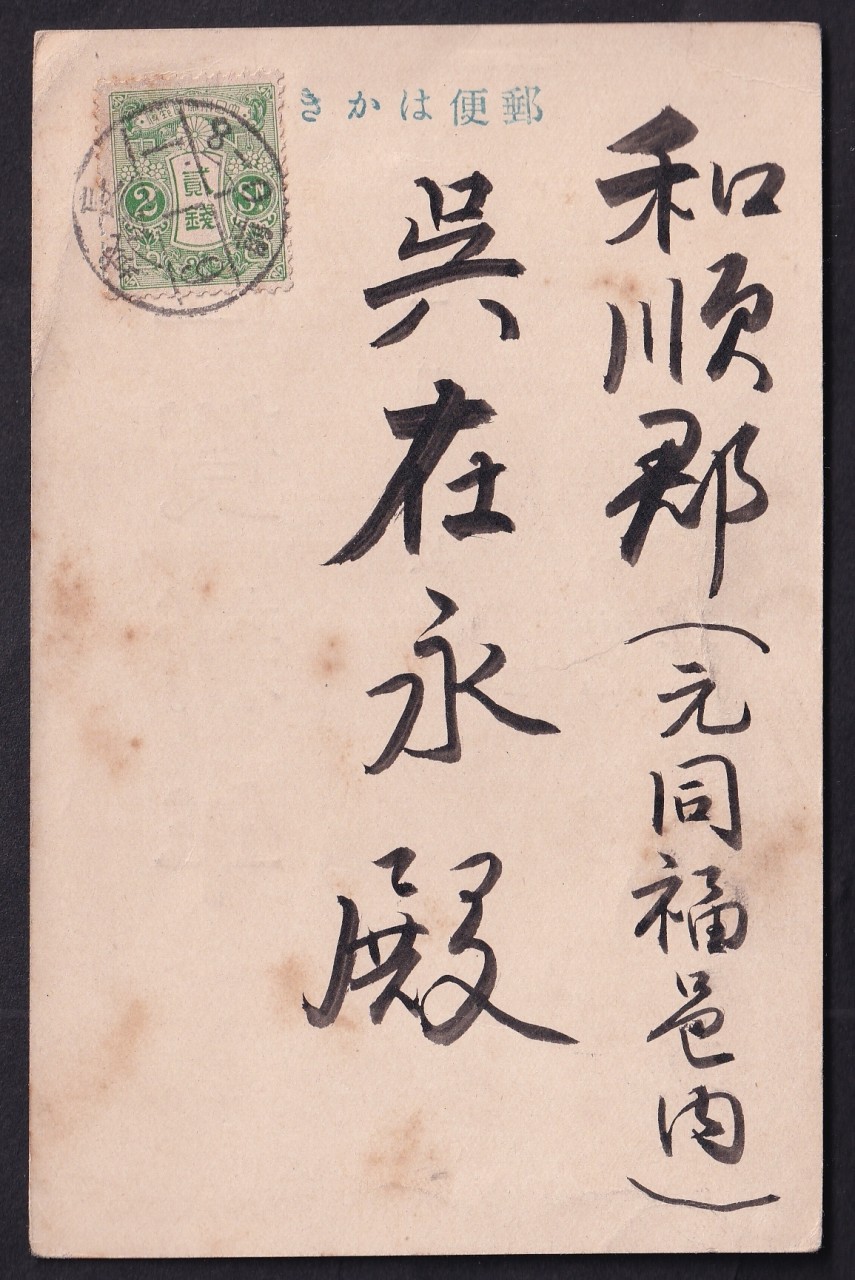 郵便はかき
和順郡（元同福邑内）
呉在永殿
貳錢
2